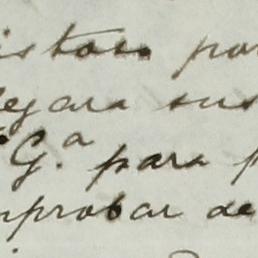 istos por
legara sus
G.ª para p
mprobar de